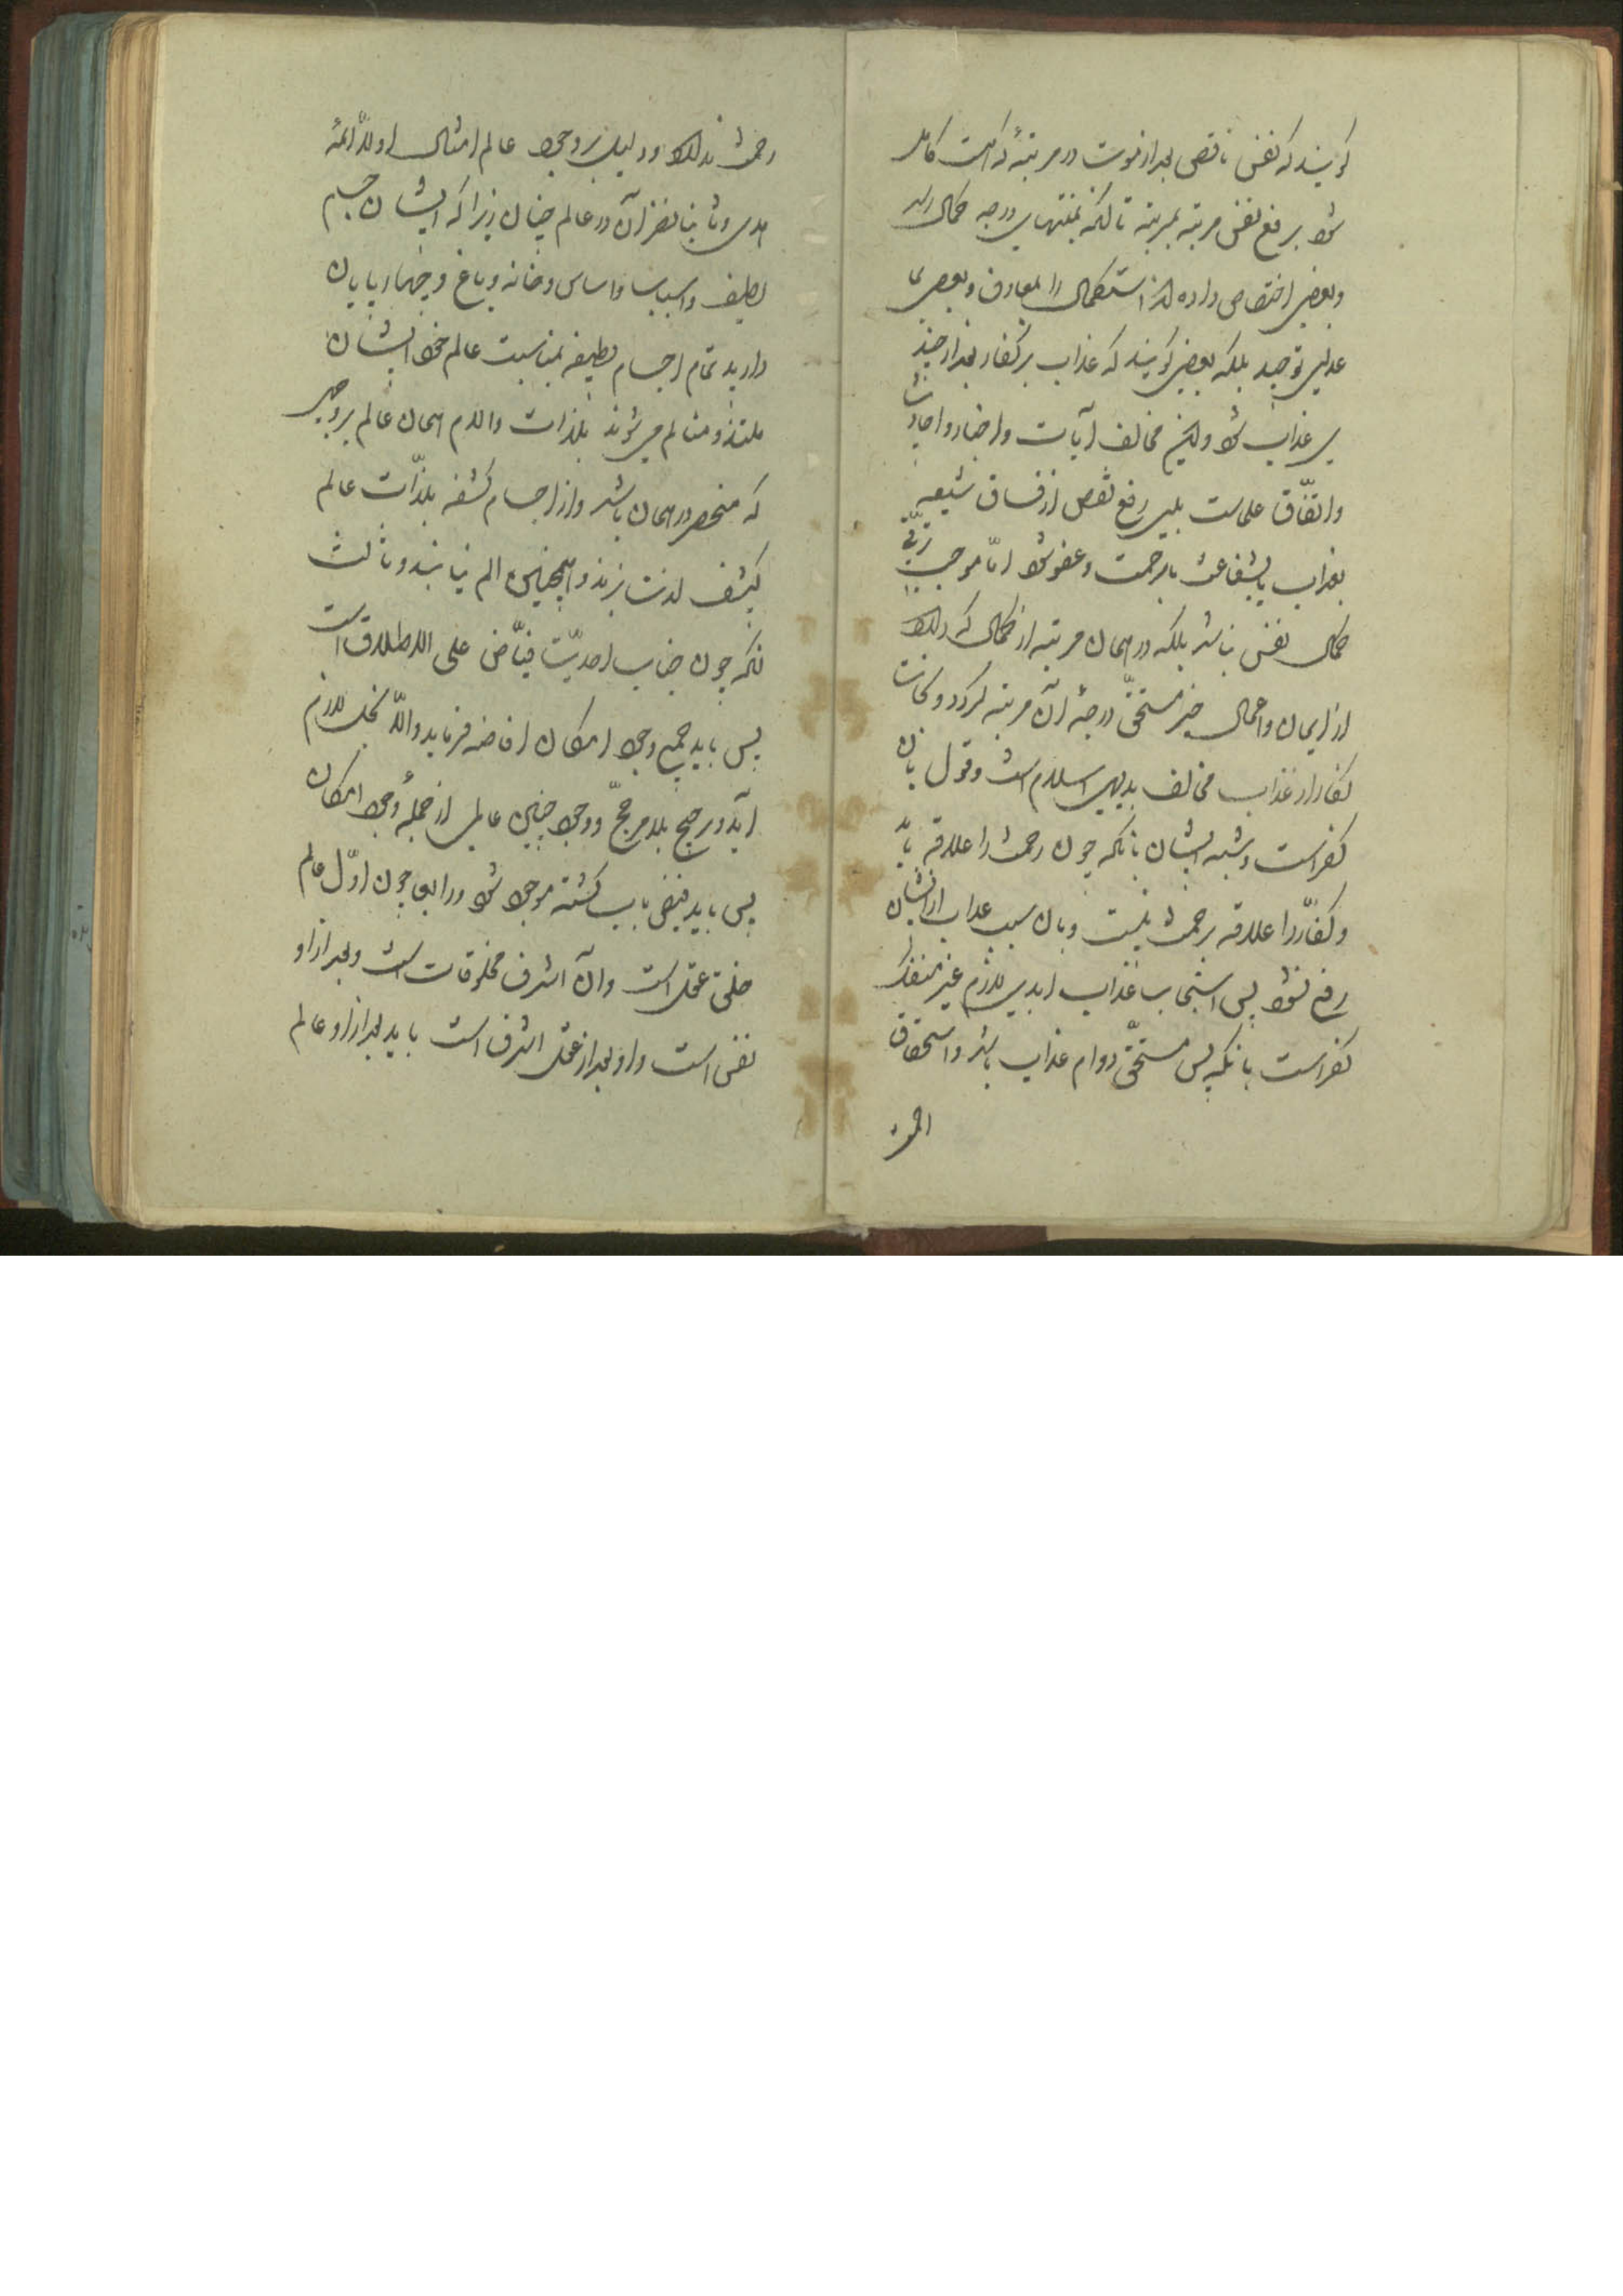 گویند که نفس ناقص بعد از موت در مرتبهٔ که است کامل
شود برفع نقص مرتبه بمرتبه تا آنکه بمنتهای درجه کمال رسد
وبعضی اختصاص داده اند استکمال را بمعارف وبعضی
توحید بلکه بعضی گویند که عذاب بر کفار بعد از چند
بی عذاب شود ولیکن مخالف آیات واخبار واحادیث
واتّفاق علماست بلی رفع نقص از فساق شیعه
بعذاب یا بشفاعت یا برحمت وعفو شود امّا موجب ترقّی
کمال نفس نباشد بلکه در همان مرتبه از کمال که دارد
از ایمان واعمال خیر مستحقّ درجهٔ آن مرتبه گردد ونجات
کفار از عذاب مخالف بدیهی اسلام است وقول بآن
کفر است وشبه ایشان بآنکه چون رحمت را علاقه باید
وکفّار را علاقه برحمت نیست وبآن سبب عذاب از ایشان
رفع نشود پس استیجاب عذاب ابدی لازم غیر منفک
کفر است بآنکه پس مستحقّ دوام عذاب باشد واستحقاق
رحمت ندارد ودلیل بر وجود عالم امثال اولاً ائمه
هدی وثانیا نظر آن در عالم جنان زیرا که ایشان جسم
لطیف واسباب واساس وخانه وباغ وچهارپایان
دارند تمام اجسام لطیفه بمناسبت عالم خود ایشان
ملتذ ومتالم می شوند بلذات والام همان عالم بر وجهی
که منحصر در همان باشد واز اجسام کثیفه بلذّات عالم
کثیف لذت نبرند وهمچنین الم نیابند وثالث
آنکه چون جناب احدیّت فیّاض علی الاطلاق است
پس باید جمیع وجود امکان افاضه فرماید والّا بخل لازم
آید وترجیح بلا مرجّح ووجود چنین عالمی از جملهٔ وجود امکان
پس باید فیض یاب گشته موجود شود ورابع چون اوّل عالم
خلق عقل است وآن اشرف مخلوقات است وبعد از او
نفس است واو بعد از عقل اشرف است باید بعد از او عالم